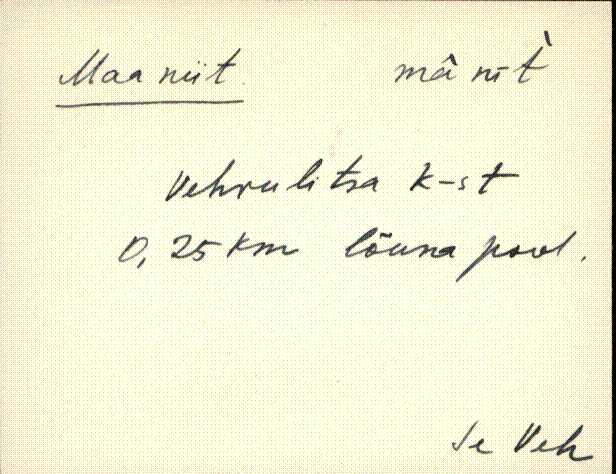 Maaniit. mâ nī t̀
Vehrulitsa k-st
0,25 km lõuna pool.
Se Veh